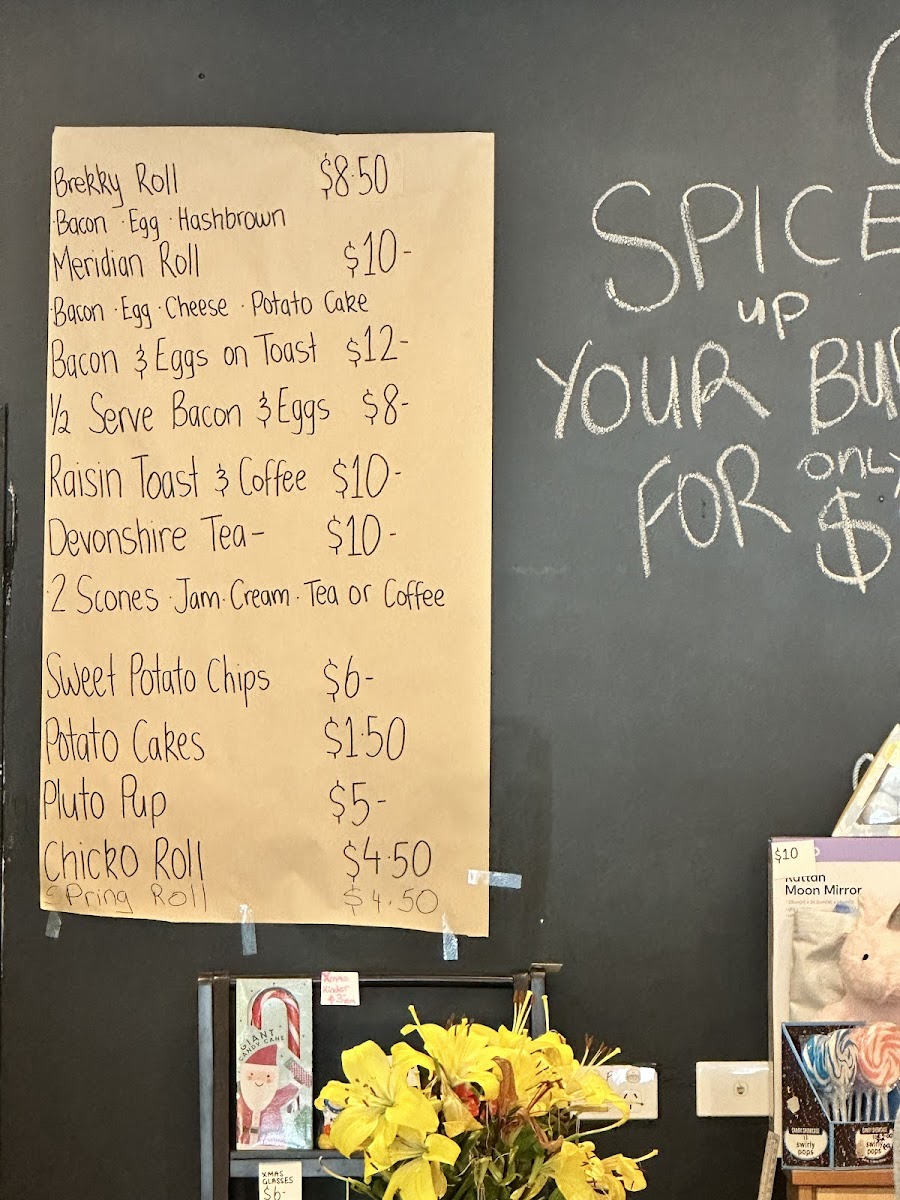 Brekky Roll $8.50
·Bacon ·Egg ·Hashbrown
Meridian Roll $10-
·Bacon ·Egg ·Cheese ·Potato Cake
Bacon & Eggs on Toast $12-
1/2 Serve Bacon & Eggs $8-
Raisin Toast & Coffee $10-
Devonshire Tea- $10-
·2 Scones ·Jam·Cream·Tea or Coffee
Sweet Potato Chips $6-
Potato Cakes $1.50
Pluto Pup $5-
Chicko Roll $4.50
Spring Roll $4.50
SPICE
UP
YOUR
FOR ONLY
$
$10
Rattan
Moon Mirror
Xmas
Kinder
GIANT
CANDY CANE
XMAS
GLASSES
$6-
CANDY SHOWCASE
swirly
pops
swirly
pops